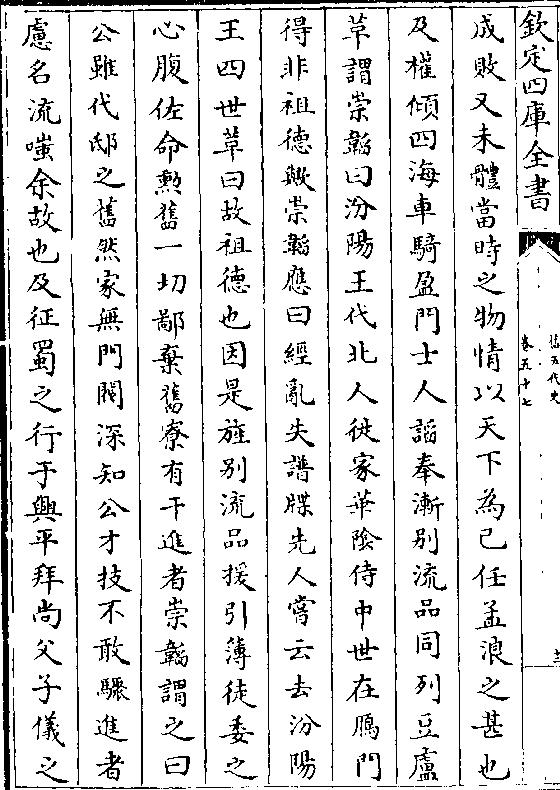 欽定四庫全書
舊五代史
卷五十七
成敗又未體當時之物情以天下為己任孟浪之甚也
及權傾四海車騎盈門士人諂奉漸別流品同列豆盧
革謂崇韜曰汾陽王代北人徙家華陰侍中世在鴈門
得非祖德歟崇韜應曰經亂失譜牒先人嘗云去汾陽
王四世革曰故祖德也因是旌別流品援引薄徒委之
心腹佐命勲舊一切鄙棄舊寮有干進者崇韜謂之曰
公雖代邸之舊然家無門閥深知公才技不敢驟進者
慮名流嗤余故也及征蜀之行于興平拜尚父子儀之